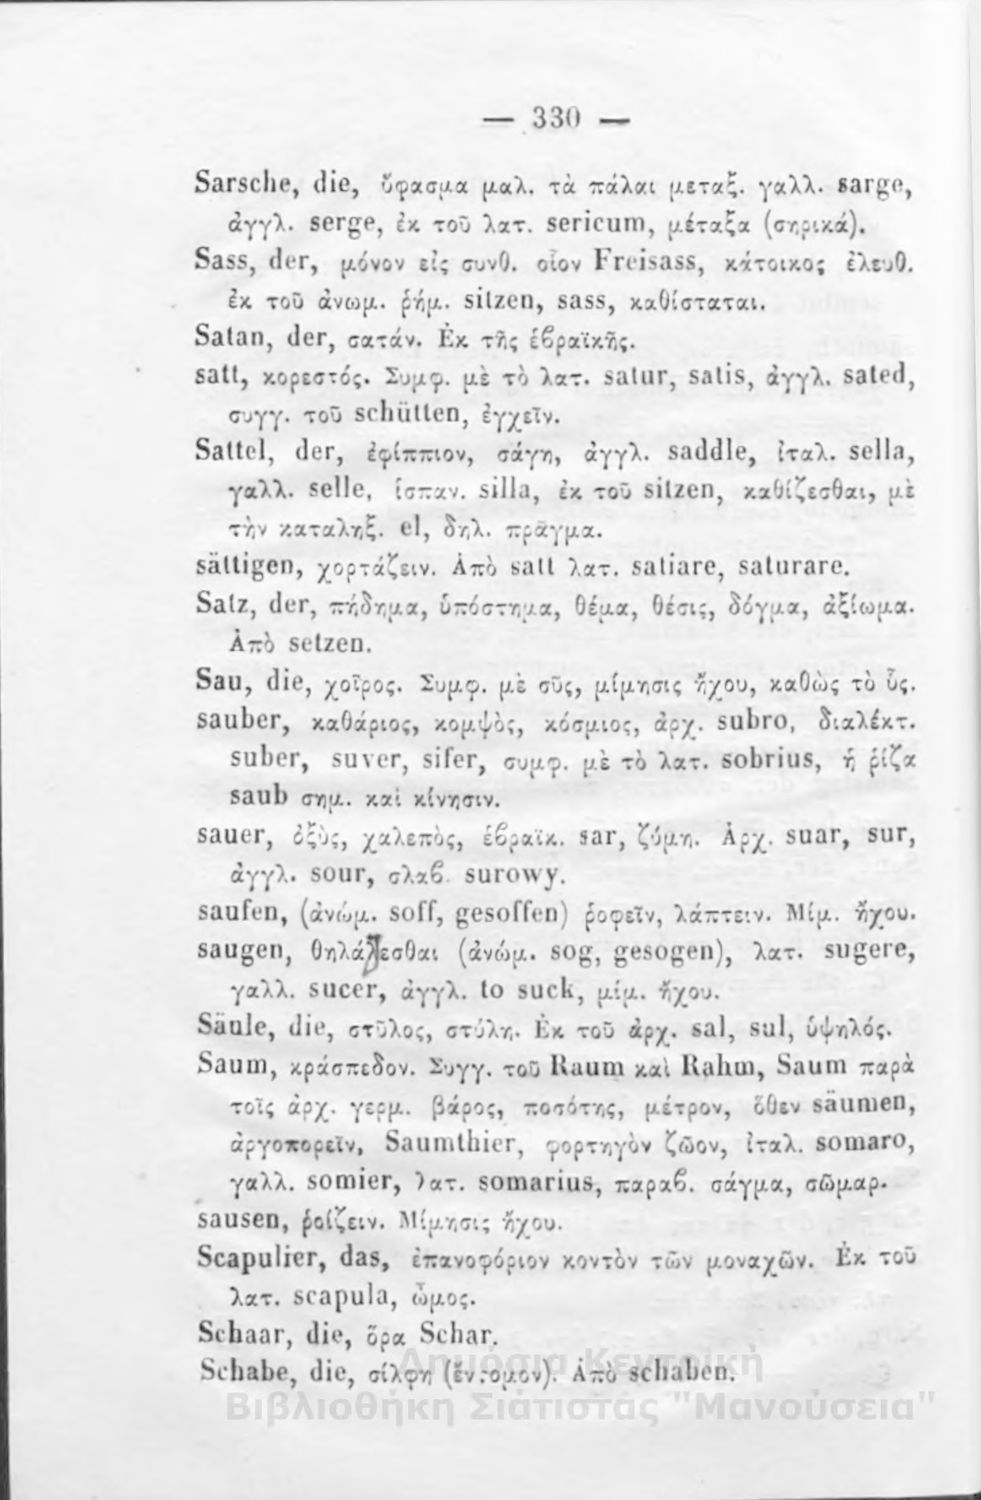 — 330 —
Sarsche, die, ὕφασμα μαλ. τὰ πάλαι μεταξ. γαλλ. sarge,
ἀγγλ. serge, ἐκ τοῦ λατ. sericum, μέταξα (σηρικά).
Sass, der, μόνον εἰς συνθ. οἷον Freisass, κάτοικος ἐλευθ.
ἐκ τοῦ ἀνωμ. ῥήμ. sitzen, sass, καθίσταται.
Satan, der, σατάν. Ἐκ τῆς ἑβραϊκῆς.
satt, κορεστός. Συμφ. μὲ τὸ λατ. satur, satis, ἀγγλ. sated,
συγγ. τοῦ schütten, ἐγχεῖν.
Sattel, der, ἐφίππιον, σάγη, ἀγγλ. saddle, ἰταλ. sella,
γαλλ. selle, ἱσπαν. silla, ἐκ τοῦ sitzen, καθίζεσθαι, μὲ
τὴν καταληξ. el, δηλ. πρᾶγμα.
sättigen, χορτάζειν. Ἀπὸ satt λατ. satiare, saturare.
Satz, der, πήδημα, ὑπόστημα, θέμα, θέσις, δόγμα, ἀξίωμα.
Ἀπὸ setzen.
Sau, die, χοῖρος. Συμφ. μὲ σῦς, μίμησις ἤχου, καθὼς τὸ ὗς.
sauber, καθάριος, κομψὸς, κόσμιος, ἀρχ. subro, διαλέκτ.
suber, suver, sifer, συμφ. μὲ τὸ λατ. sobrius, ἡ ῥίζα
saub σημ. καὶ κίνησιν.
sauer, ὀξὺς, χαλεπὸς, ἑβραϊκ. sar, ζύμη. Ἀρχ. suar, sur,
ἀγγλ. sour, σλαβ. surowy.
saufen, (ἀνώμ. soff, gesoffen) ῥοφεῖν, λάπτειν. Μίμ. ἤχου.
saugen, θηλάζεσθαι (ἀνώμ. sog, gesogen), λατ. sugere,
γαλλ. sucer, ἀγγλ. to suck, μίμ. ἤχου.
Säule, die, στῦλος, στύλη. Ἐκ τοῦ ἀρχ. sal, sul, ὑψηλός.
Saum, κράσπεδον. Συγγ. τοῦ Raum καὶ Rahm, Saum παρὰ
τοῖς ἀρχ. γερμ. βάρος, ποσότης, μέτρον, ὅθεν säumen,
ἀργοπορεῖν, Saumthier, φορτηγὸν ζῶον, ἰταλ. somaro,
γαλλ. somier, λατ. somarius, παραβ. σάγμα, σῶμαρ.
sausen, ῥοίζειν. Μίμησις ἤχου.
Scapulier, das, ἐπανοφόριον κοντὸν τῶν μοναχῶν. Ἐκ τοῦ
λατ. scapula, ὦμος.
Schaar, die, ὅρα Schar.
Schabe, die, σίλφη (ἔντομον). Ἀπὸ schaben.
Δημόσια Κεντρική
Βιβλιοθήκη Σιάτιστας "Μανούσεια"